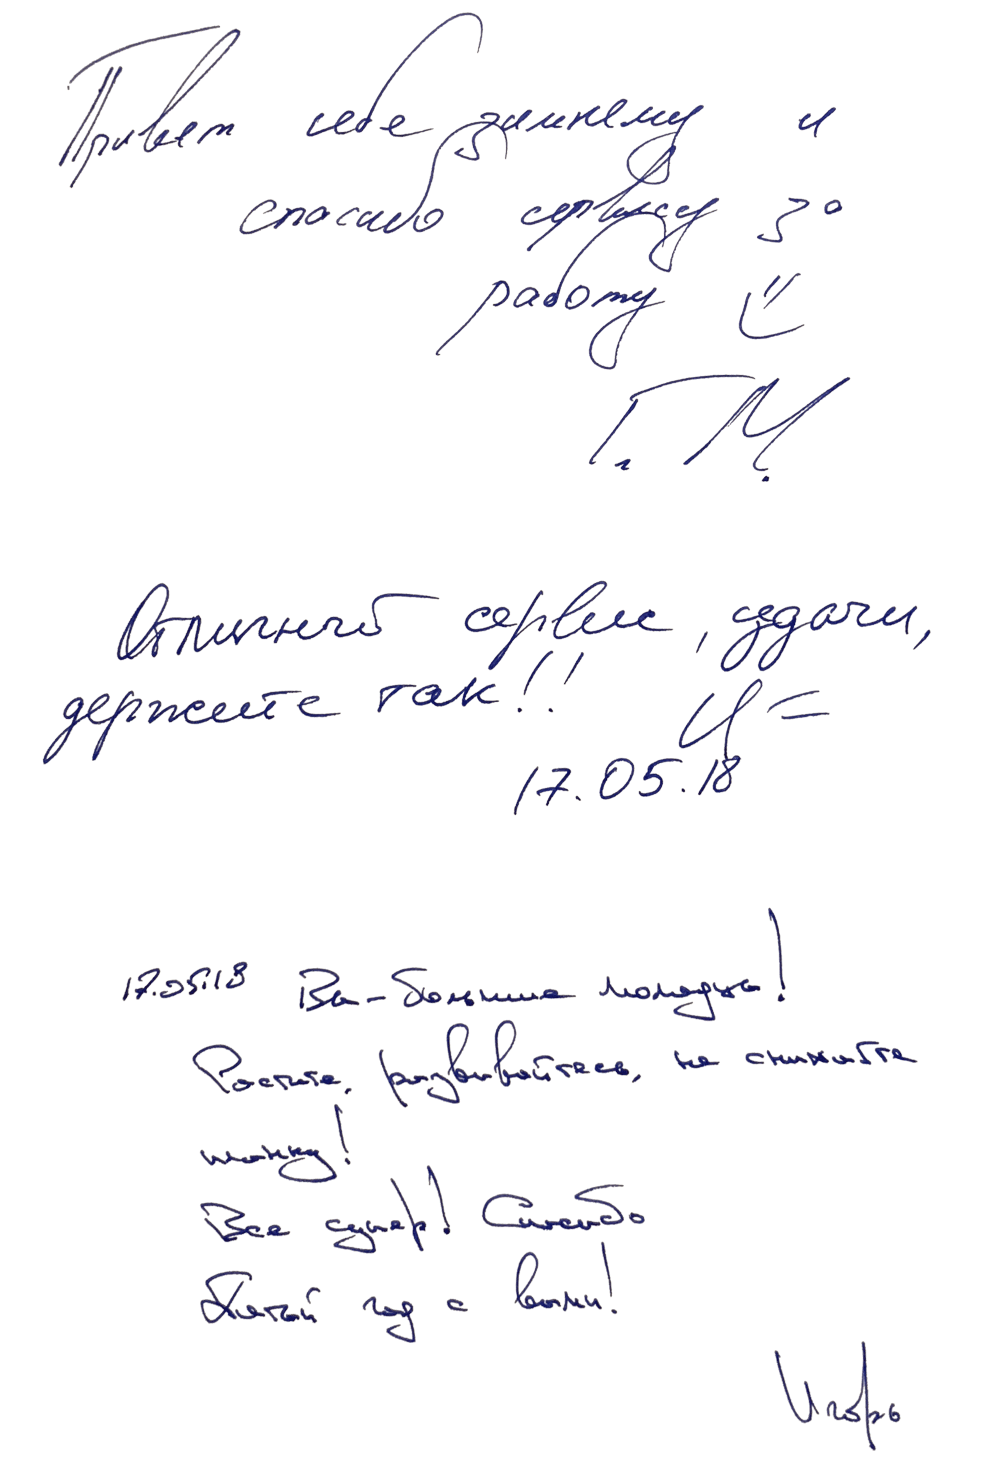 Привет себе зимнему и
спасибо сервису за
работу
Г. М.
Отличный сервис, удачи,
держите так!!
17.05.18
17.05.18 Вы - большие молодцы!
Растите, развивайтесь, не снижайте
планку!
Все супер! Спасибо
Пятый год с вами!
Игорь